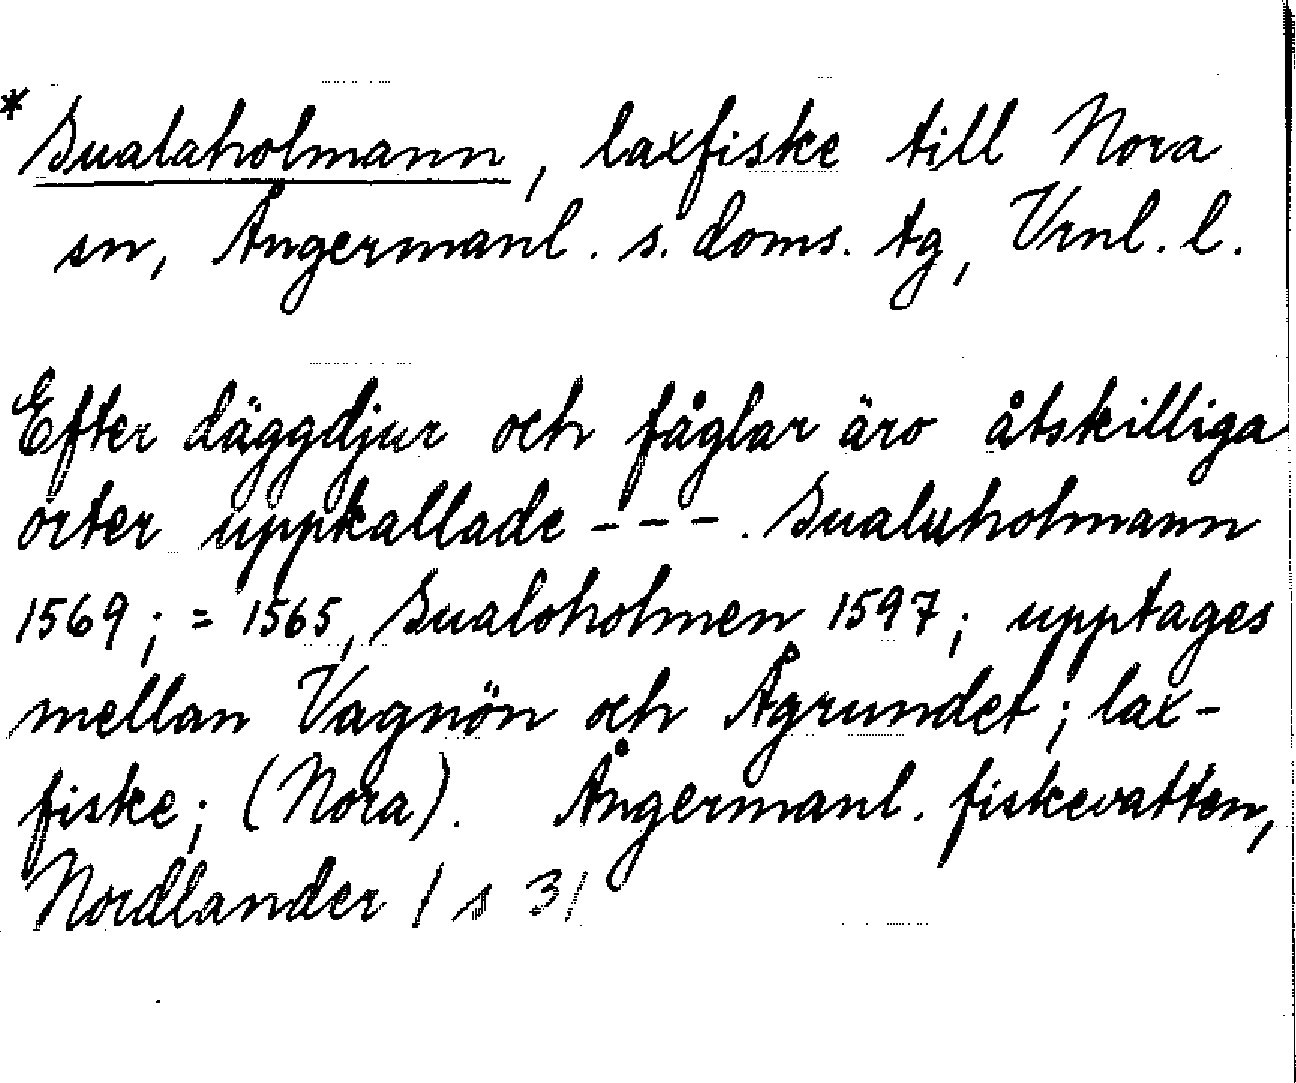 * Sualaholmann, laxfiske till Nora
sn, Ångermanl. s. doms. tg, Vrnl. l.
Efter däggdjur och fåglar äro åtskilliga
orter uppkallade - - - . Sualuholmann
1569; = 1565, Sualoholmen 1597; upptages
mellan Vagnön och Ågrundet; lax-
fiske; (Nora). Ångermanl. fiskevatten,
Nordlander / s 31